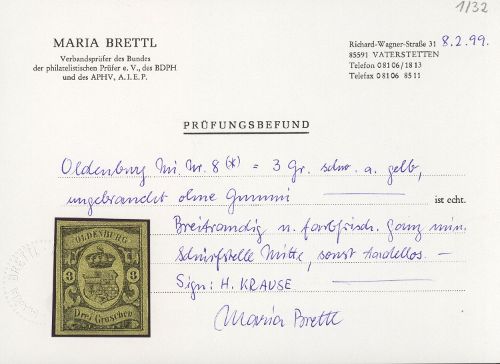 1/32
MARIA BRETTL
Verbandsprüfer des Bundes
der philatelistischen Prüfer e. V., des BDPH
und des APHV, A. I. E. P.
Richard-Wagner-Straße 31 8.2.99.
85591 VATERSTETTEN
Telefon 0 81 06 / 18 13
Telefax 0 81 06 85 11
PRÜFUNGSBEFUND
Oldenburg Mi. Nr. 8 (*) = 3 Gr. schw. a. gelb,
ungebraucht ohne Gummi ist echt.
Breitrandig u. farbfrisch. Ganz min.
Schürfstelle Mitte, sonst tadellos. –
Sign: H. KRAUSE
Maria Brettl
OLDENBURG
3 3
Drei Groschen